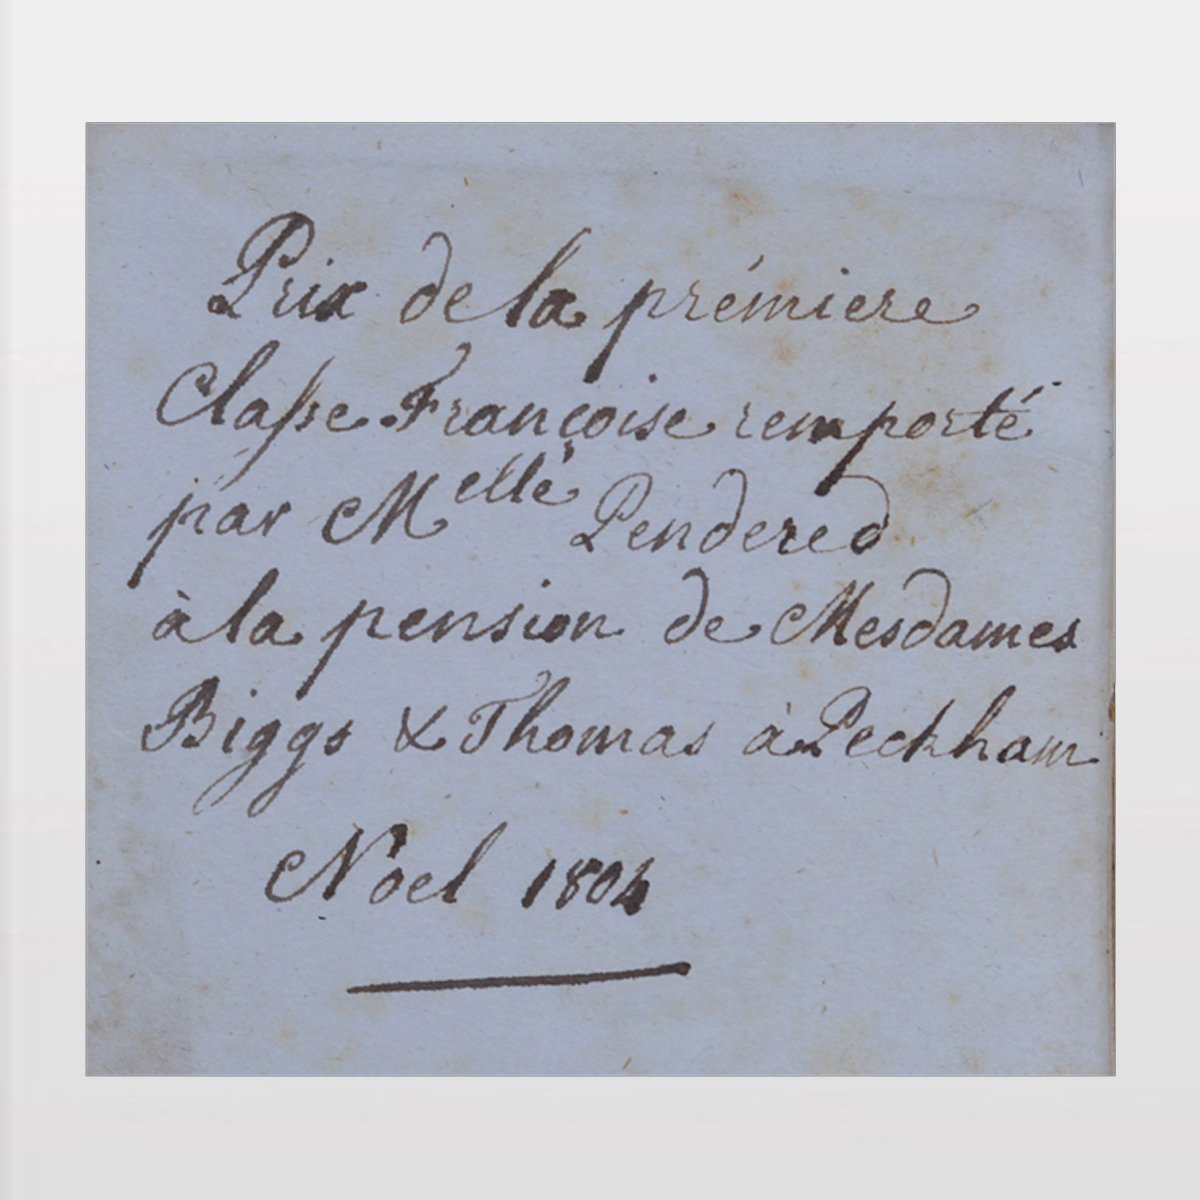 Prix de la prémiere
Claſse Françoise remporté
par Melle Pendered
à la pension de Mesdames
Biggs & Thomas à Peckham
Noel 1804